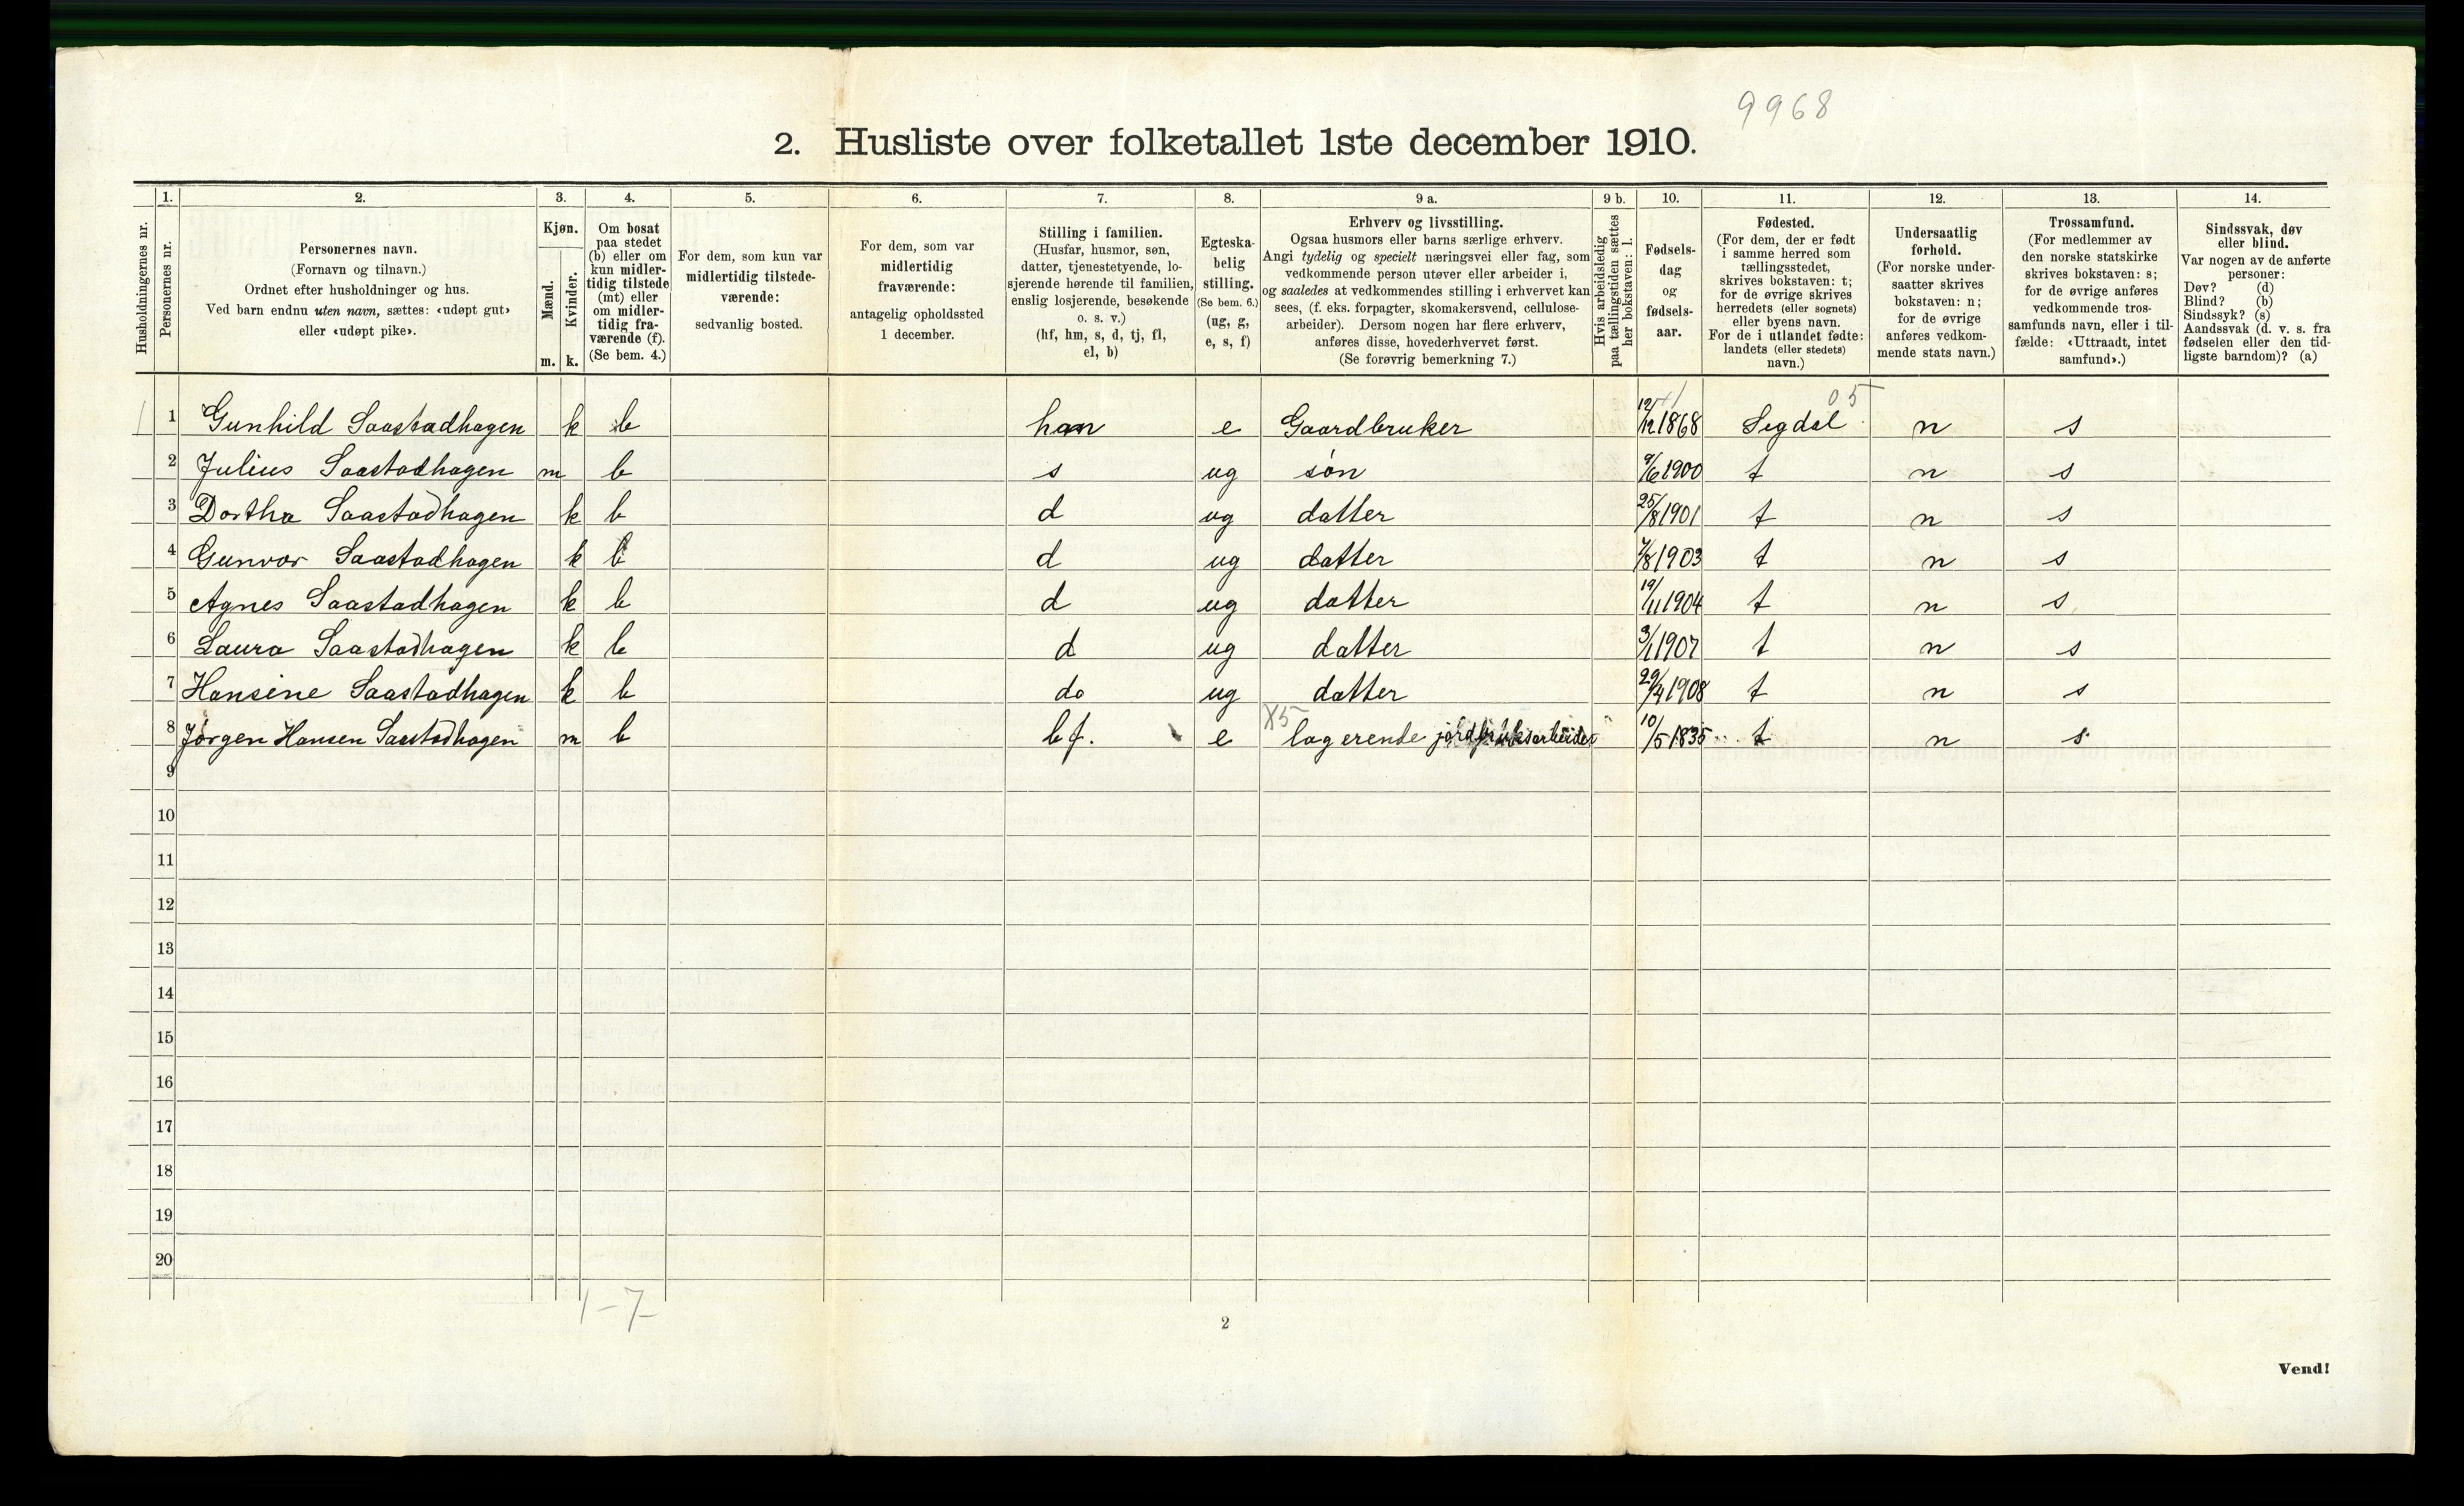 9968
2. Husliste over folketallet 1ste december 1910.
Husholdningernes nr.
1.
Personernes nr.
2.
Personernes navn.
(Fornavn og tilnavn.)
Ordnet efter husholdninger og hus.
Ved barn endnu uten navn, sættes: «udøpt gut»
eller «udøpt pike».
3.
Kjøn.
Mænd.
m.
Kvinder.
k.
4.
Om bosat
paa stedet
(b) eller om
kun midler-
tidig tilstede
(mt) eller
om midler-
tidig fra-
værende (f).
(Se bem. 4.)
5.
For dem, som kun var
midlertidig tilstede-
værende:
sedvanlig bosted.
6.
For dem, som var
midlertidig
fraværende:
antagelig opholdssted
1 december.
7.
Stilling i familien.
(Husfar, husmor, søn,
datter, tjenestetyende, lo-
sjerende hørende til familien,
enslig losjerende, besøkende
o. s. v.)
(hf, hm, s, d, tj, fl,
el, b)
8.
Egteska-
belig
stilling.
(Se bem. 6.)
(ug, g,
e, s, f)
9 a.
Erhverv og livsstilling.
Ogsaa husmors eller barns særlige erhverv.
Angi tydelig og specielt næringsvei eller fag, som
vedkommende person utøver eller arbeider i,
og saaledes at vedkommendes stilling i erhvervet kan
sees, (f. eks. forpagter, skomakersvend, cellulose-
arbeider). Dersom nogen har flere erhverv,
anføres disse, hovederhvervet først.
(Se forøvrig bemerkning 7.)
9 b.
Hvis arbeidsledig
paa tællingstiden sættes
her bokstaven: l.
10.
Fødsels-
dag
og
fødsels-
aar.
11.
Fødested.
(For dem, der er født
i samme herred som
tællingsstedet,
skrives bokstaven: t;
for de øvrige skrives
herredets (eller sognets)
eller byens navn.
For de i utlandet fødte:
landets (eller stedets)
navn.)
12.
Undersaatlig
forhold.
(For norske under-
saatter skrives
bokstaven: n;
for de øvrige
anføres vedkom-
mende stats navn.)
13.
Trossamfund.
(For medlemmer av
den norske statskirke
skrives bokstaven: s;
for de øvrige anføres
vedkommende tros-
samfunds navn, eller i til-
fælde: «Uttraadt, intet
samfund».)
14.
Sindssvak, døv
eller blind.
Var nogen av de anførte
personer:
Døv? (d)
Blind? (b)
Sindssyk? (s)
Aandssvak (d. v. s. fra
fødselen eller den tid-
ligste barndom)? (a)
05
1 1 Gunhild Saastadhagen k b e Gaardbruker 12/12 1868 Sigdal n s
2 Julius Saastadhagen m b s ug søn 9/6 1900 t n s
3 Dortha Saastadhagen k b d ug datter 25/8 1901 t n s
4 Gunvor Saastadhagen k b d ug datter 7/8 1903 t n s
5 Agnes Saastadhagen k b d ug datter 19/11 1904 t n s
6 Laura Saastadhagen k b d ug datter 3/1 1907 t n s
7 Hansine Saastadhagen k b do ug datter 29/4 1908 t n s
X5
8 Jørgen Hansen Saastadhagen m b bf. e logerende jordbruksarbeider 10/5 1835 t n s
9
10
11
12
13
14
15
16
17
18
19
20
1-7
2
Vend!